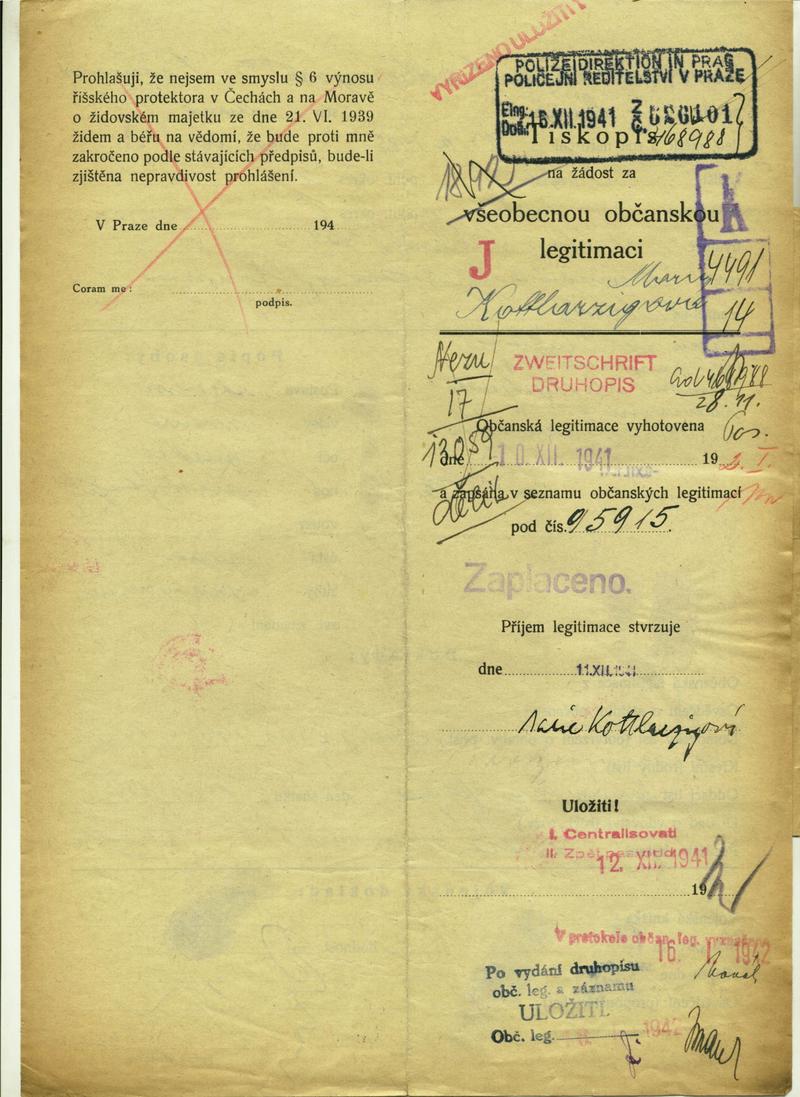 Prohlašuji, že nejsem ve smyslu § 6 výnosu
říšského protektora v Čechách a na Moravě
o židovském majetku ze dne 21. VI. 1939
židem a béřu na vědomí, že bude proti mně
zakročeno podle stávajících předpisů, bude-li
zjištěna nepravdivost prohlášení.
V Praze dne 194
Coram me:
podpis.
VYŘÍZENO ULOŽITI
POLIZEIDIREKTION IN PRAG
POLICEJNÍ ŘEDITELSTVÍ V PRAZE
Eing. 15.XII.1941
Došlo
Tiskopis 168988
na žádost za
všeobecnou občanskou
J legitimaci
K
4491
14
Marie
Kottharzigová
ZWEITSCHRIFT
DRUHOPIS
17
28. 11.
Občanská legitimace vyhotovena
dne 10. XII. 1941 19
a zapsána v seznamu občanských legitimací
pod čís. 95915.
Zaplaceno.
Příjem legitimace stvrzuje
dne 11.XII.1941
Marie Kottharzigová
Uložiti!
I. Centralisovati
II. Zpět
12. XII. 1941
19
V protokole občan. leg. vyznačeno
16. I. 1942
Po vydání druhopisu
obč. leg. a záznamu
ULOŽITI.
Obč. leg. 1942